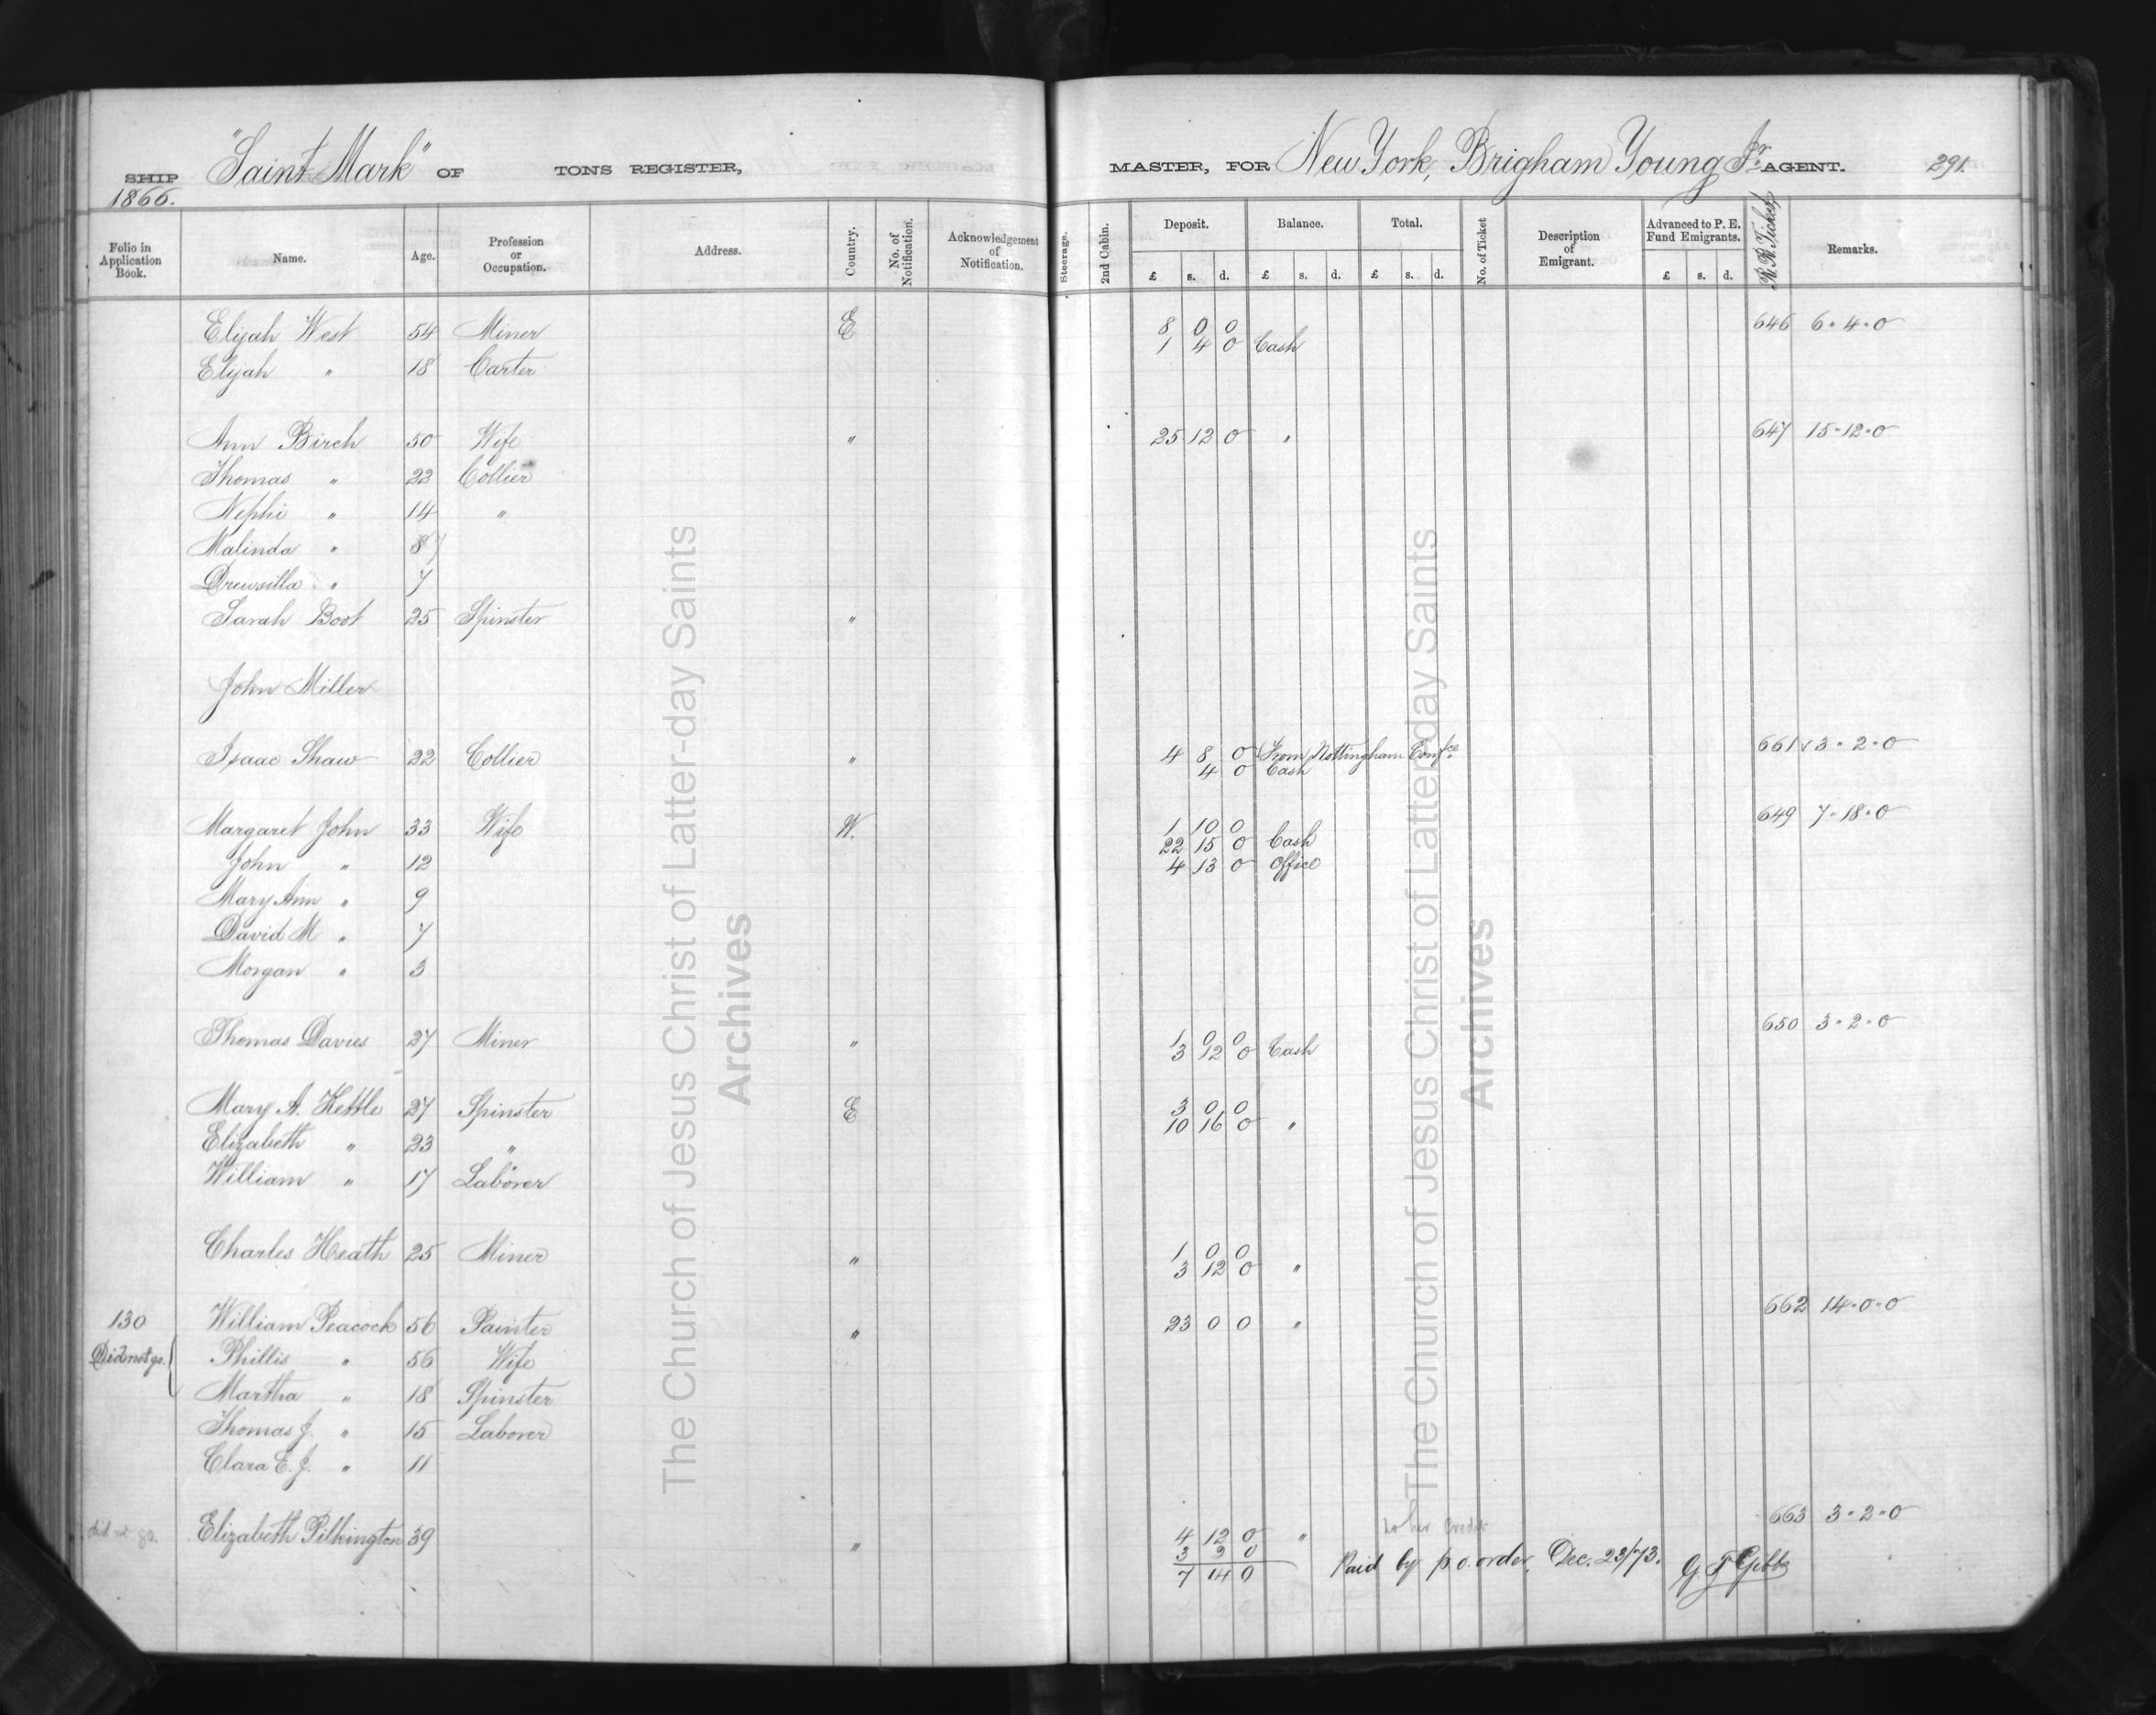 SHIP "Saint Mark" OF TONS REGISTER, MASTER, FOR New York, Brigham Young Jr. AGENT. 291.
1866.
Folio in Application Book. Name. Age. Profession or Occupation. Address. Country. No. of Notification. Acknowledgement of Notification. Steerage. 2nd Cabin. Deposit. £ s. d. Balance. £ s. d. Total. £ s. d. No. of Ticket Description of Emigrant. Advanced to P. E. Fund Emigrants. £ s. d. R.R. Tickets Remarks.
Elijah West 54 Miner E 8 0 0 646 6 " 4 " 0
1 4 0 Cash
Elijah " 18 Carter
Ann Birch 50 Wife " 25 12 0 " 647 15 " 12 " 0
Thomas " 22 Collier
Nephi " 14 "
Malinda " 8
Drewsilla " 7
Sarah Boot 25 Spinster "
John Miller
Isaac Shaw 22 Collier " 4 8 0 From Nottingham Confce 661 3 " 2 " 0
4 0 Cash
Margaret John 33 Wife W. 1 10 0 649 7 " 18 " 0
22 15 0 Cash
John " 12 4 13 0 Office
Mary Ann " 9
David M " 7
Morgan " 3
Thomas Davies 27 Miner " 1 0 0 650 3 " 2 " 0
3 12 0 Cash
Mary A. Kettle 27 Spinster E 3 0 0
10 16 0 "
Elizabeth " 23 "
William " 17 Laborer
Charles Heath 25 Miner " 1 0 0
3 12 0 "
130 William Peacock 56 Painter " 23 0 0 " 662 14 " 0 " 0
Did not go. Phillis " 56 Wife
Martha " 18 Spinster
Thomas J. " 15 Laborer
Clara E. J. " 11
did not go. Elizabeth Pilkington 39 " 4 12 0 " to her Credit 663 3 " 2 " 0
3 2 0
7 14 0 Paid by p.o. order, Dec. 23/73. G F Gibbs
The Church of Jesus Christ of Latter-day Saints
Archives
The Church of Jesus Christ of Latter-day Saints
Archives